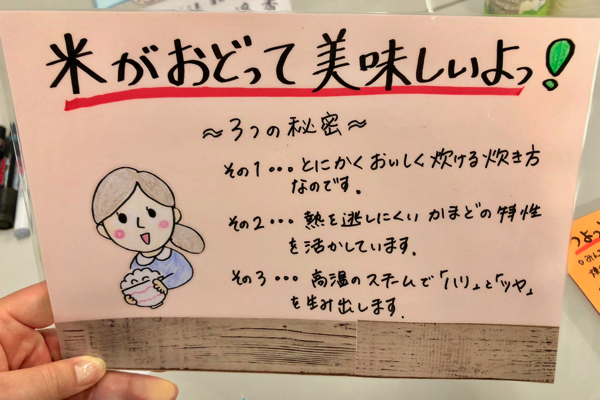 米がおどって美味しいよっ!
～3つの秘密～
その1・・・とにかくおいしく炊ける炊き方
なのです。
その2・・・熱を逃しにくいかまどの特性
を活かしています。
その3・・・高温のスチームで「ハリ」と「ツヤ」
を生み出します.
つよっ